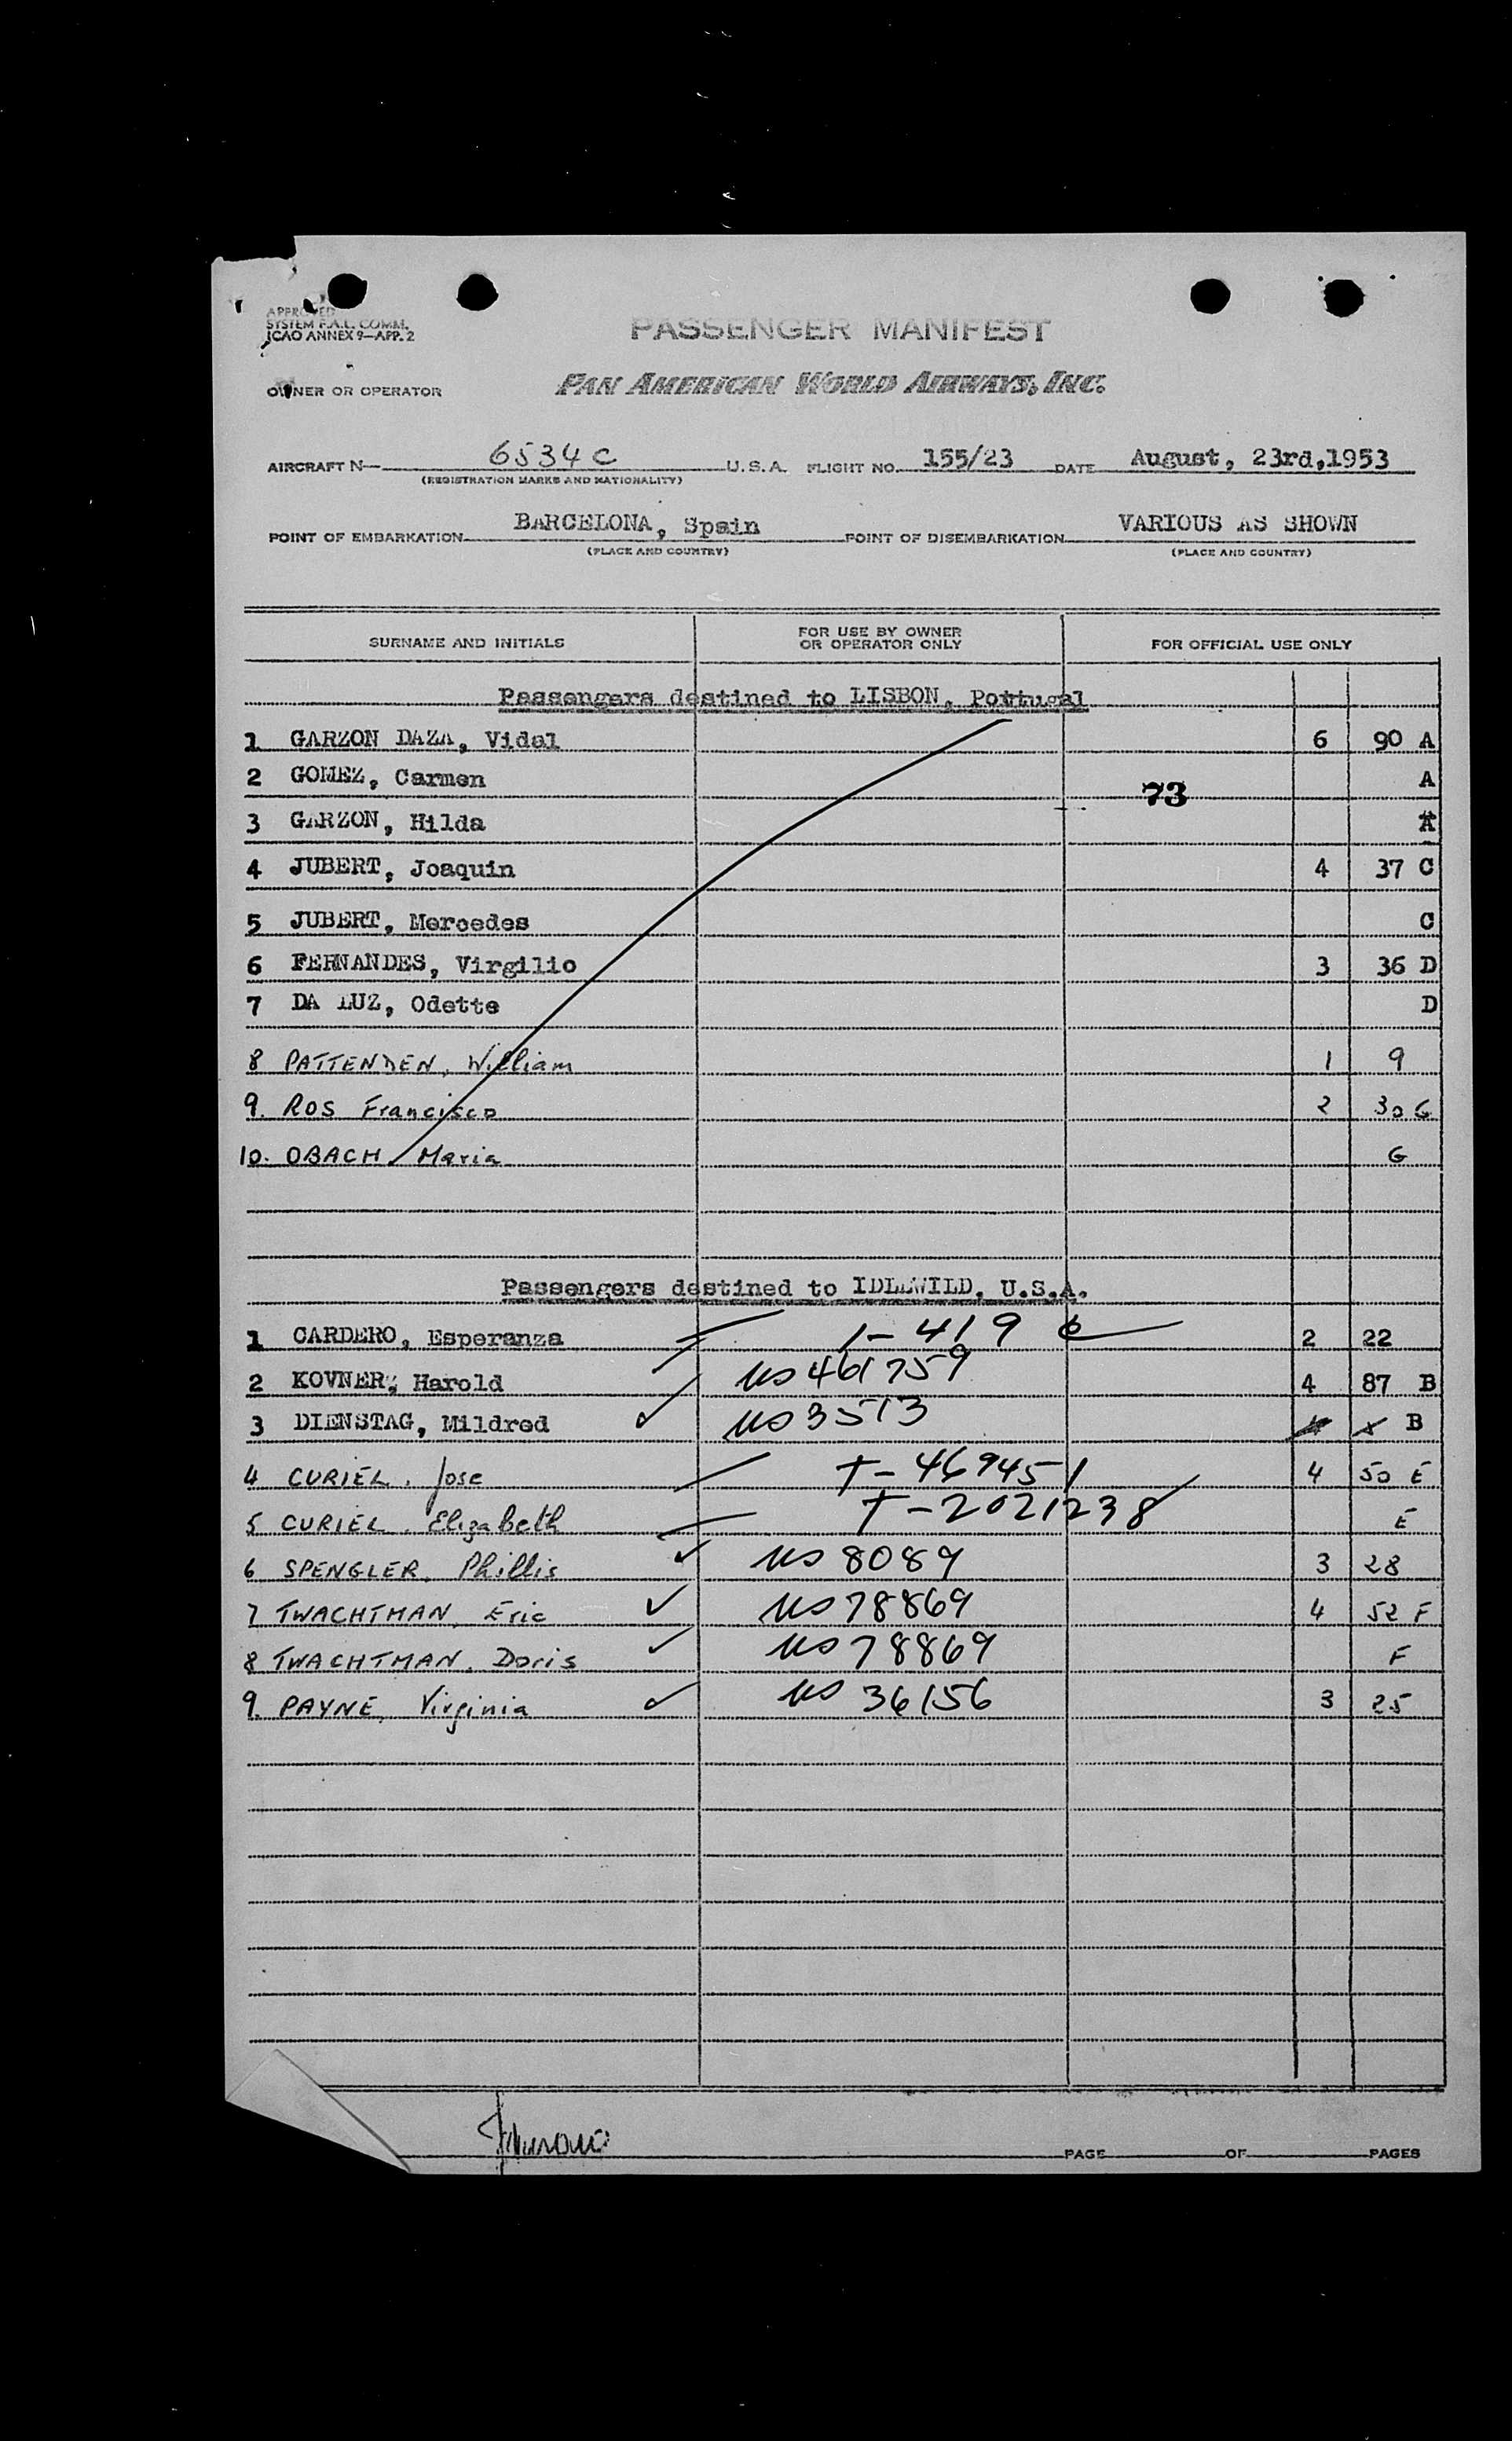 APPROVED
SYSTEM F.A.L. COMM.
ICAO ANNEX 9—APP. 2
PASSENGER MANIFEST
OWNER OR OPERATOR PAN AMERICAN WORLD AIRWAYS, INC.
AIRCRAFT N— 6534C U.S.A. FLIGHT NO. 155/23 DATE August, 23rd,1953
(REGISTRATION MARKS AND NATIONALITY)
POINT OF EMBARKATION BARCELONA, Spain POINT OF DISEMBARKATION VARIOUS AS SHOWN
(PLACE AND COUNTRY) (PLACE AND COUNTRY)
SURNAME AND INITIALS FOR USE BY OWNER OR OPERATOR ONLY FOR OFFICIAL USE ONLY
Passengers destined to LISBON, Portugal
1 GARZON DAZA, Vidal 6 90 A
2 GOMEZ, Carmen A
73
3 GARZON, Hilda A
4 JUBERT, Joaquin 4 37 C
5 JUBERT, Mercedes C
6 FERNANDES, Virgilio 3 36 D
7 DA LUZ, Odette D
8 PATTENDEN, William 1 9
9. ROS Francisco 2 30 G
10. OBACH Maria G
Passengers destined to IDLEWILD, U.S.A.
1 CARDERO, Esperanza 1-419 2 22
2 KOVNER, Harold US 461759 4 87 B
3 DIENSTAG, Mildred US 3513 B
4 CURIEL, Jose T-469451 4 50 E
5 CURIEL, Elizabeth T-2021238 E
6 SPENGLER, Phillis US 8089 3 28
7 TWACHTMAN, Eric US 78869 4 52 F
8 TWACHTMAN, Doris US 78869 F
9. PAYNE, Virginia US 36156 3 25
PAGE OF PAGES